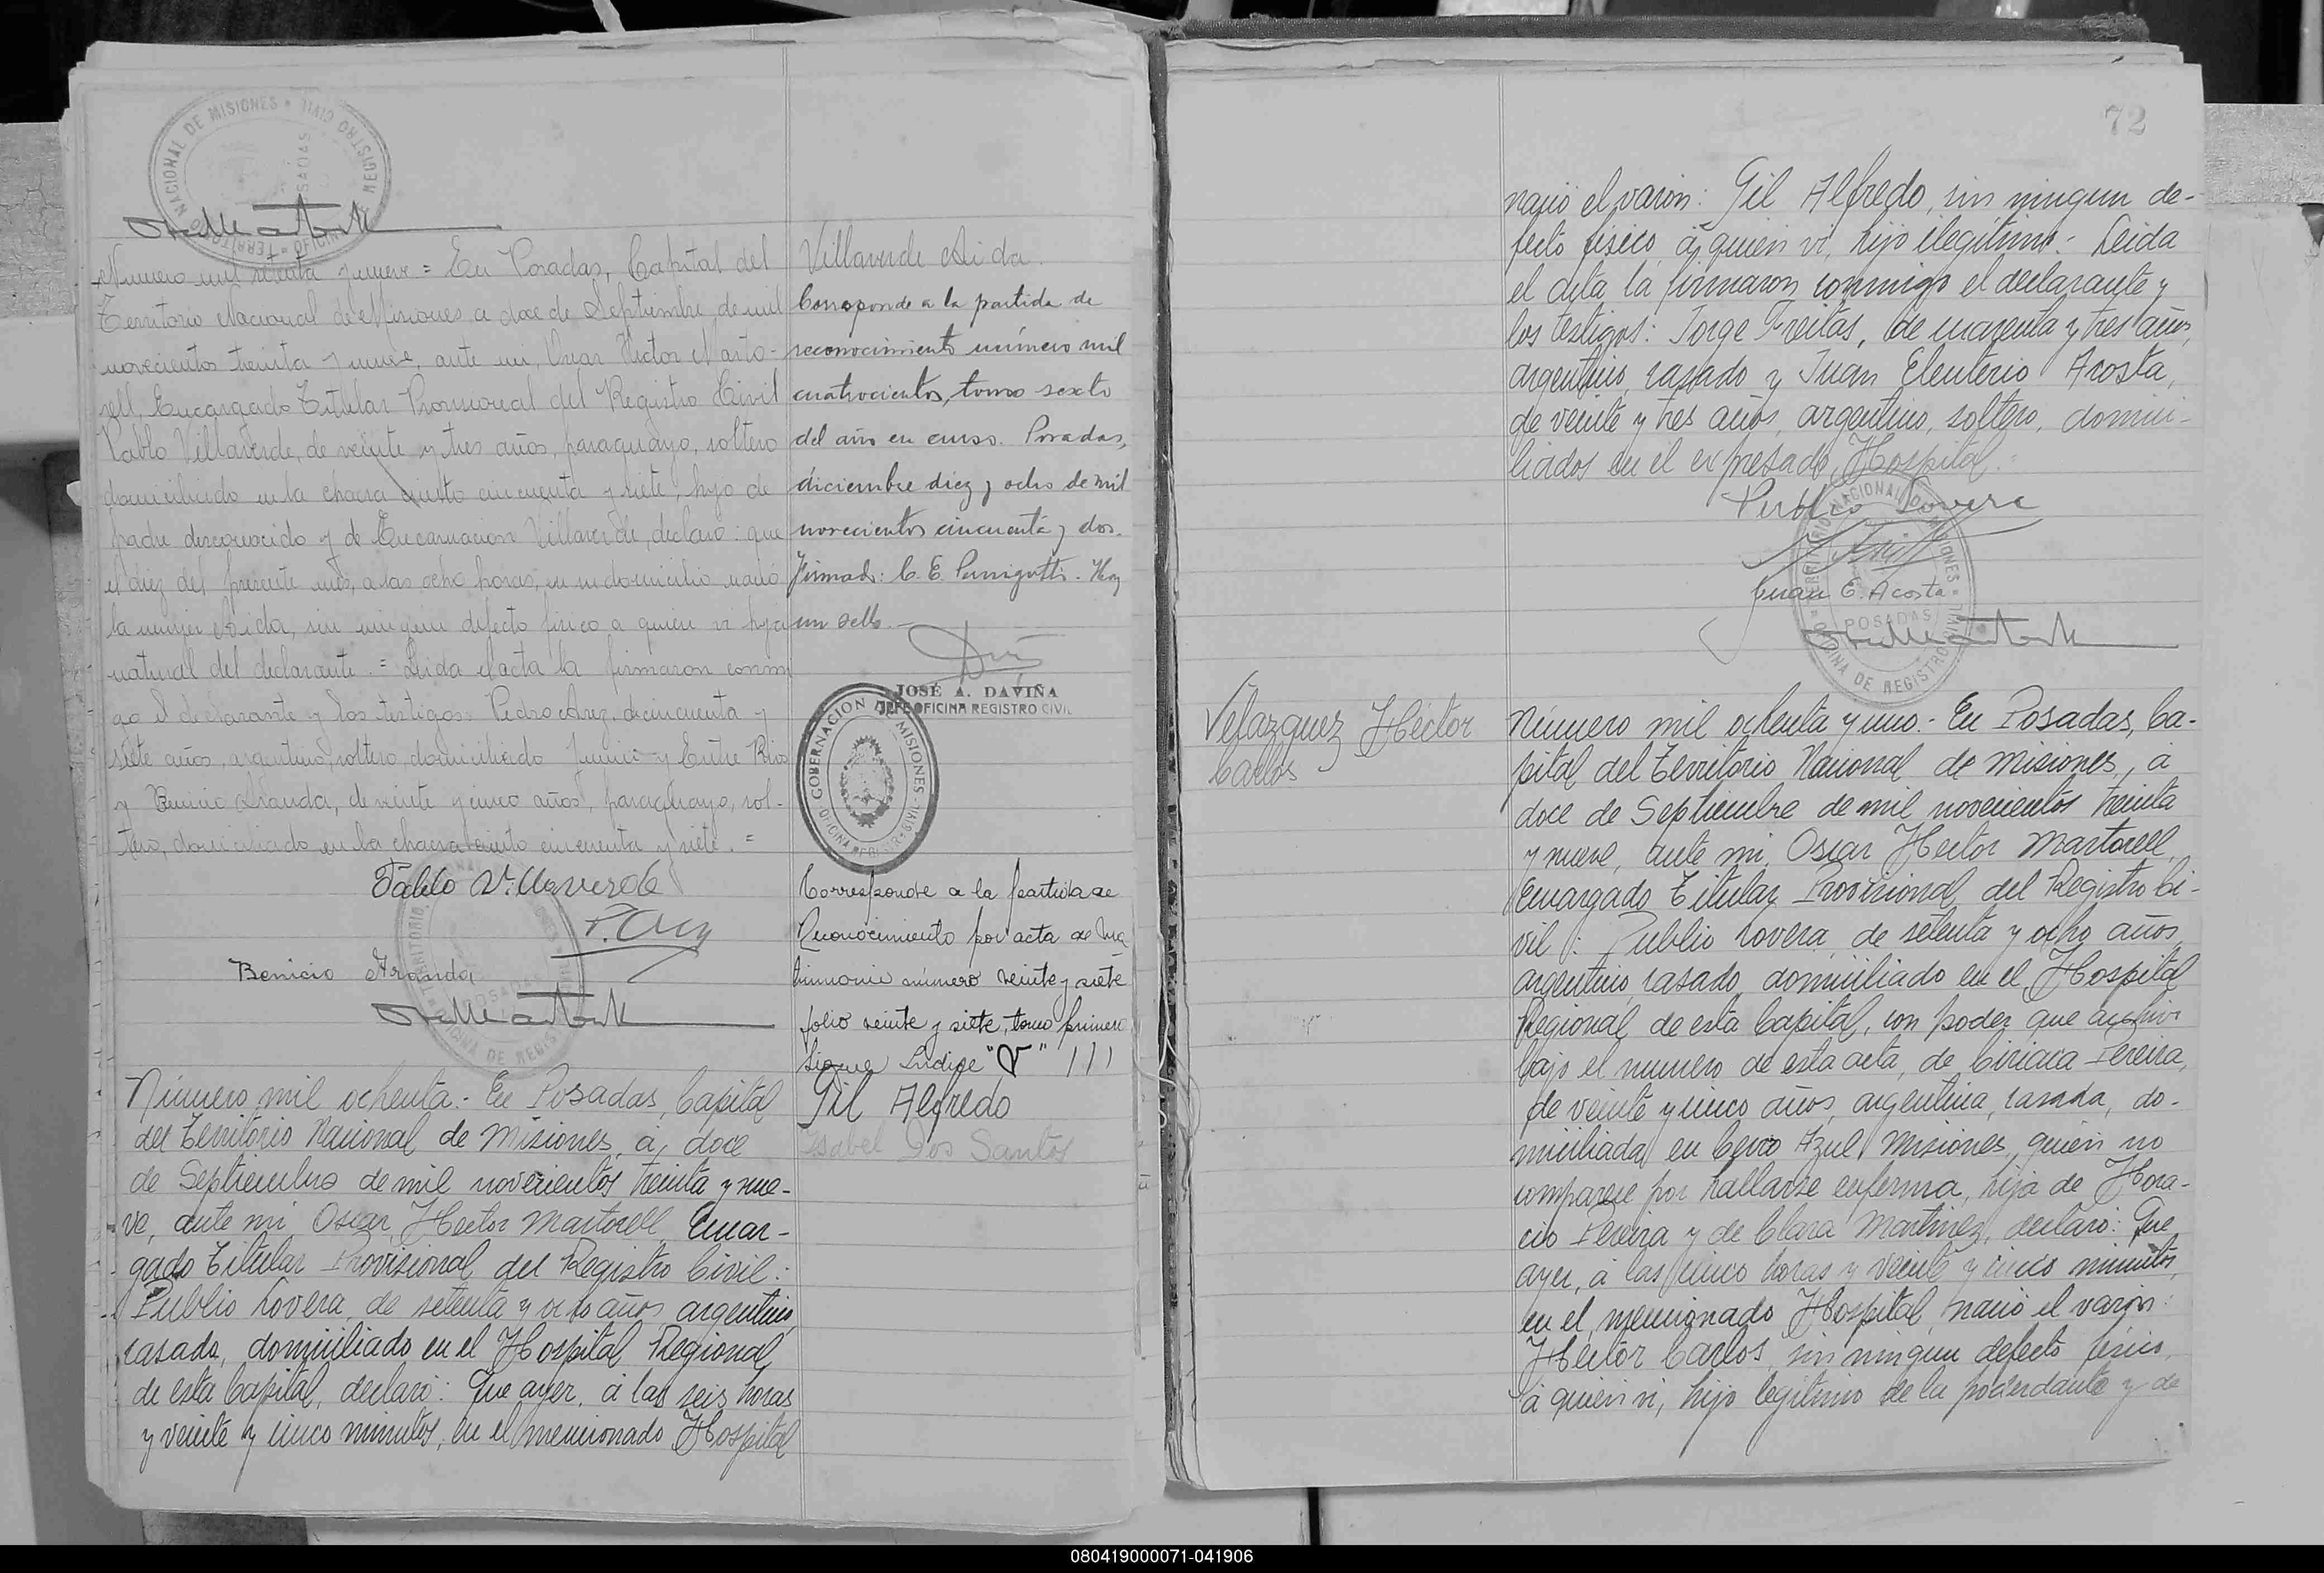 TERRITORIO NACIONAL DE MISIONES
OFICINA DE REGISTRO CIVIL
POSADAS
Numero mil setenta y nueve = En Posadas, Capital del
Territorio Nacional de Misiones a doce de Septiembre de mil
novecientos treinta y nueve, ante mi, Oscar Hector Marto-
rell, Encargado Titular Provisional del Registro Civil
Pablo Villaverde, de veinte y tres años, paraguayo, soltero
domiciliado en la chacra ciento cincuenta y siete, hijo de
padre desconocido y de Encarnacion Villaverde, declaró: que
el diez del presente mes, a las ocho horas, en su domicilio nació
la mujer Aida, sin ningun defecto fisico a quien vi hija
natural del declarante. = Leida el acta la firmaron conmi
go el declarante y los testigos Pedro Arez, de cincuenta y
siete años, argentino, soltero, domiciliado Junin y Entre Rios
y Benicio Aranda, de veinte y cinco años, paraguayo, sol-
tero, domiciliado en la chacra ciento cincuenta y siete. =
Pablo Villaverde
Benicio Aranda
Villaverde Aida.
Corresponde a la partida de
reconocimiento número mil
cuatrocientos, tomo sexto
del año en curso. Posadas,
diciembre diez y ocho de mil
novecientos cincuenta y dos.
Firmado: C. E. . Hay
un sello.-
JOSÉ A. DAVIÑA
JEFE OFICINA REGISTRO CIVIL
GOBERNACION DE MISIONES
OFICINA REGISTRO CIVIL
Corresponde a la partida de
Reconocimiento por acta de Ma
trimonio número veinte y siete
folio veinte y siete, tomo primero
Sigue Indice "V" 111
Número mil ochenta.- En Posadas, Capital
del Territorio Nacional de Misiones, á doce
de Septiembre de mil novecientos treinta y nue-
ve, ante mi, Oscar Hector Martorell, Encar-
gado Titular Provisional del Registro Civil:
Publio Lovera, de setenta y ocho años, argentino,
casado, domiciliado en el Hospital Regional
de esta Capital, declaró: Que ayer, á las seis horas
y veinte y cinco minutos, en el mencionado Hospital
Gil Alfredo
Isabel Dos Santos
72
nació el varón: Gil Alfredo, sin ningun de-
fecto fisico, á quien vi, hijo ilegítimo.- Leida
el acta la firmaron conmigo el declarante y
los testigos: Jorge Freitas, de cuarenta y tres años,
argentino, casado y Juan Eleuterio Acosta,
de veinte y tres años, argentino, soltero, domici-
liados en el expresado Hospital.=
Publio Lovera
Juan E. Acosta
TERRITORIO NACIONAL DE MISIONES
OFICINA DE REGISTRO CIVIL
POSADAS
Velazquez Héctor
Carlos
Número mil ochenta y uno.- En Posadas, Ca-
pital del Territorio Nacional de Misiones, á
doce de Septiembre de mil novecientos treinta
y nueve, ante mi, Oscar Hector Martorell,
Encargado Titular Provisional del Registro Ci-
vil: Publio Lovera, de setenta y ocho años,
argentino, casado, domiciliado en el Hospital
Regional de esta Capital, con poder que archivo
bajo el numero de esta acta, de Ciriaca Pereira,
de veinte y cinco años, argentina, casada, do-
miciliada en Cerro Azul Misiones, quien no
comparece por hallarse enferma, hija de Hora-
cio Pereira y de Clara Martinez, declaró: Que
ayer, á las cinco horas y veinte y cinco minutos,
en el mencionado Hospital, nació el varón:
Héctor Carlos, sin ningun defecto fisico,
á quien vi, hijo legitimo de la poderdante y de
080419000071-041906